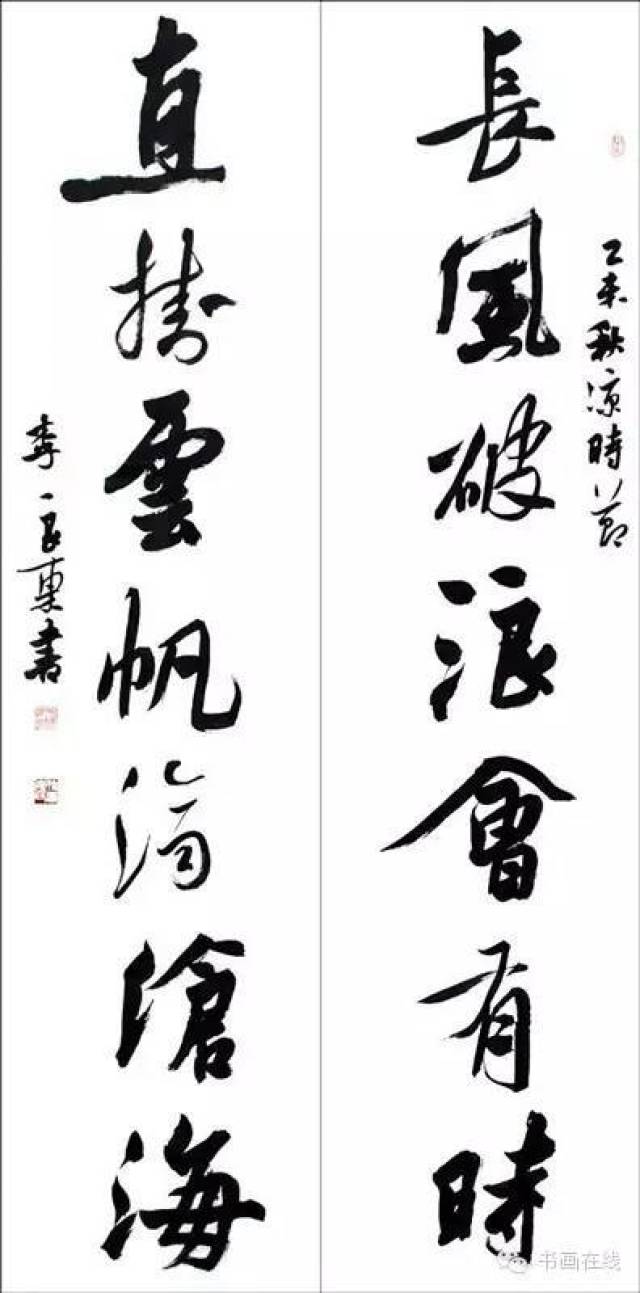 乙未秋涼時節
長風破浪會有時
直掛雲帆濟滄海
李良東書
书画在线